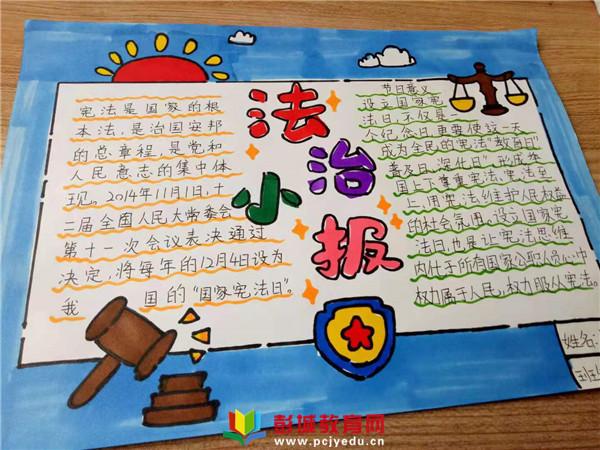 法
治
小
报
宪法是国家的根
本法，是治国安邦
的总章程，是党和
人民意志的集中体
现。2014年11月1日，十
二届全国人民大常委会
第十一次会议表决通过
决定，将每年的12月4日设为
我国的“国家宪法日”。
节日意义
设立国家宪
法日，不仅是一
个纪念日，更要使这一天
成为全民的宪法“教育日”
普及日，深化日”，形成举
国上下尊重宪法，宪法至
上，用宪法维护人民权益
的社会氛围，设立国家宪
法日，也是让宪法思维
内化于所有国家公职人员心中
权力属于人民，权力服从宪法。
姓名：
班
彭城教育网
www.pcjyedu.cn